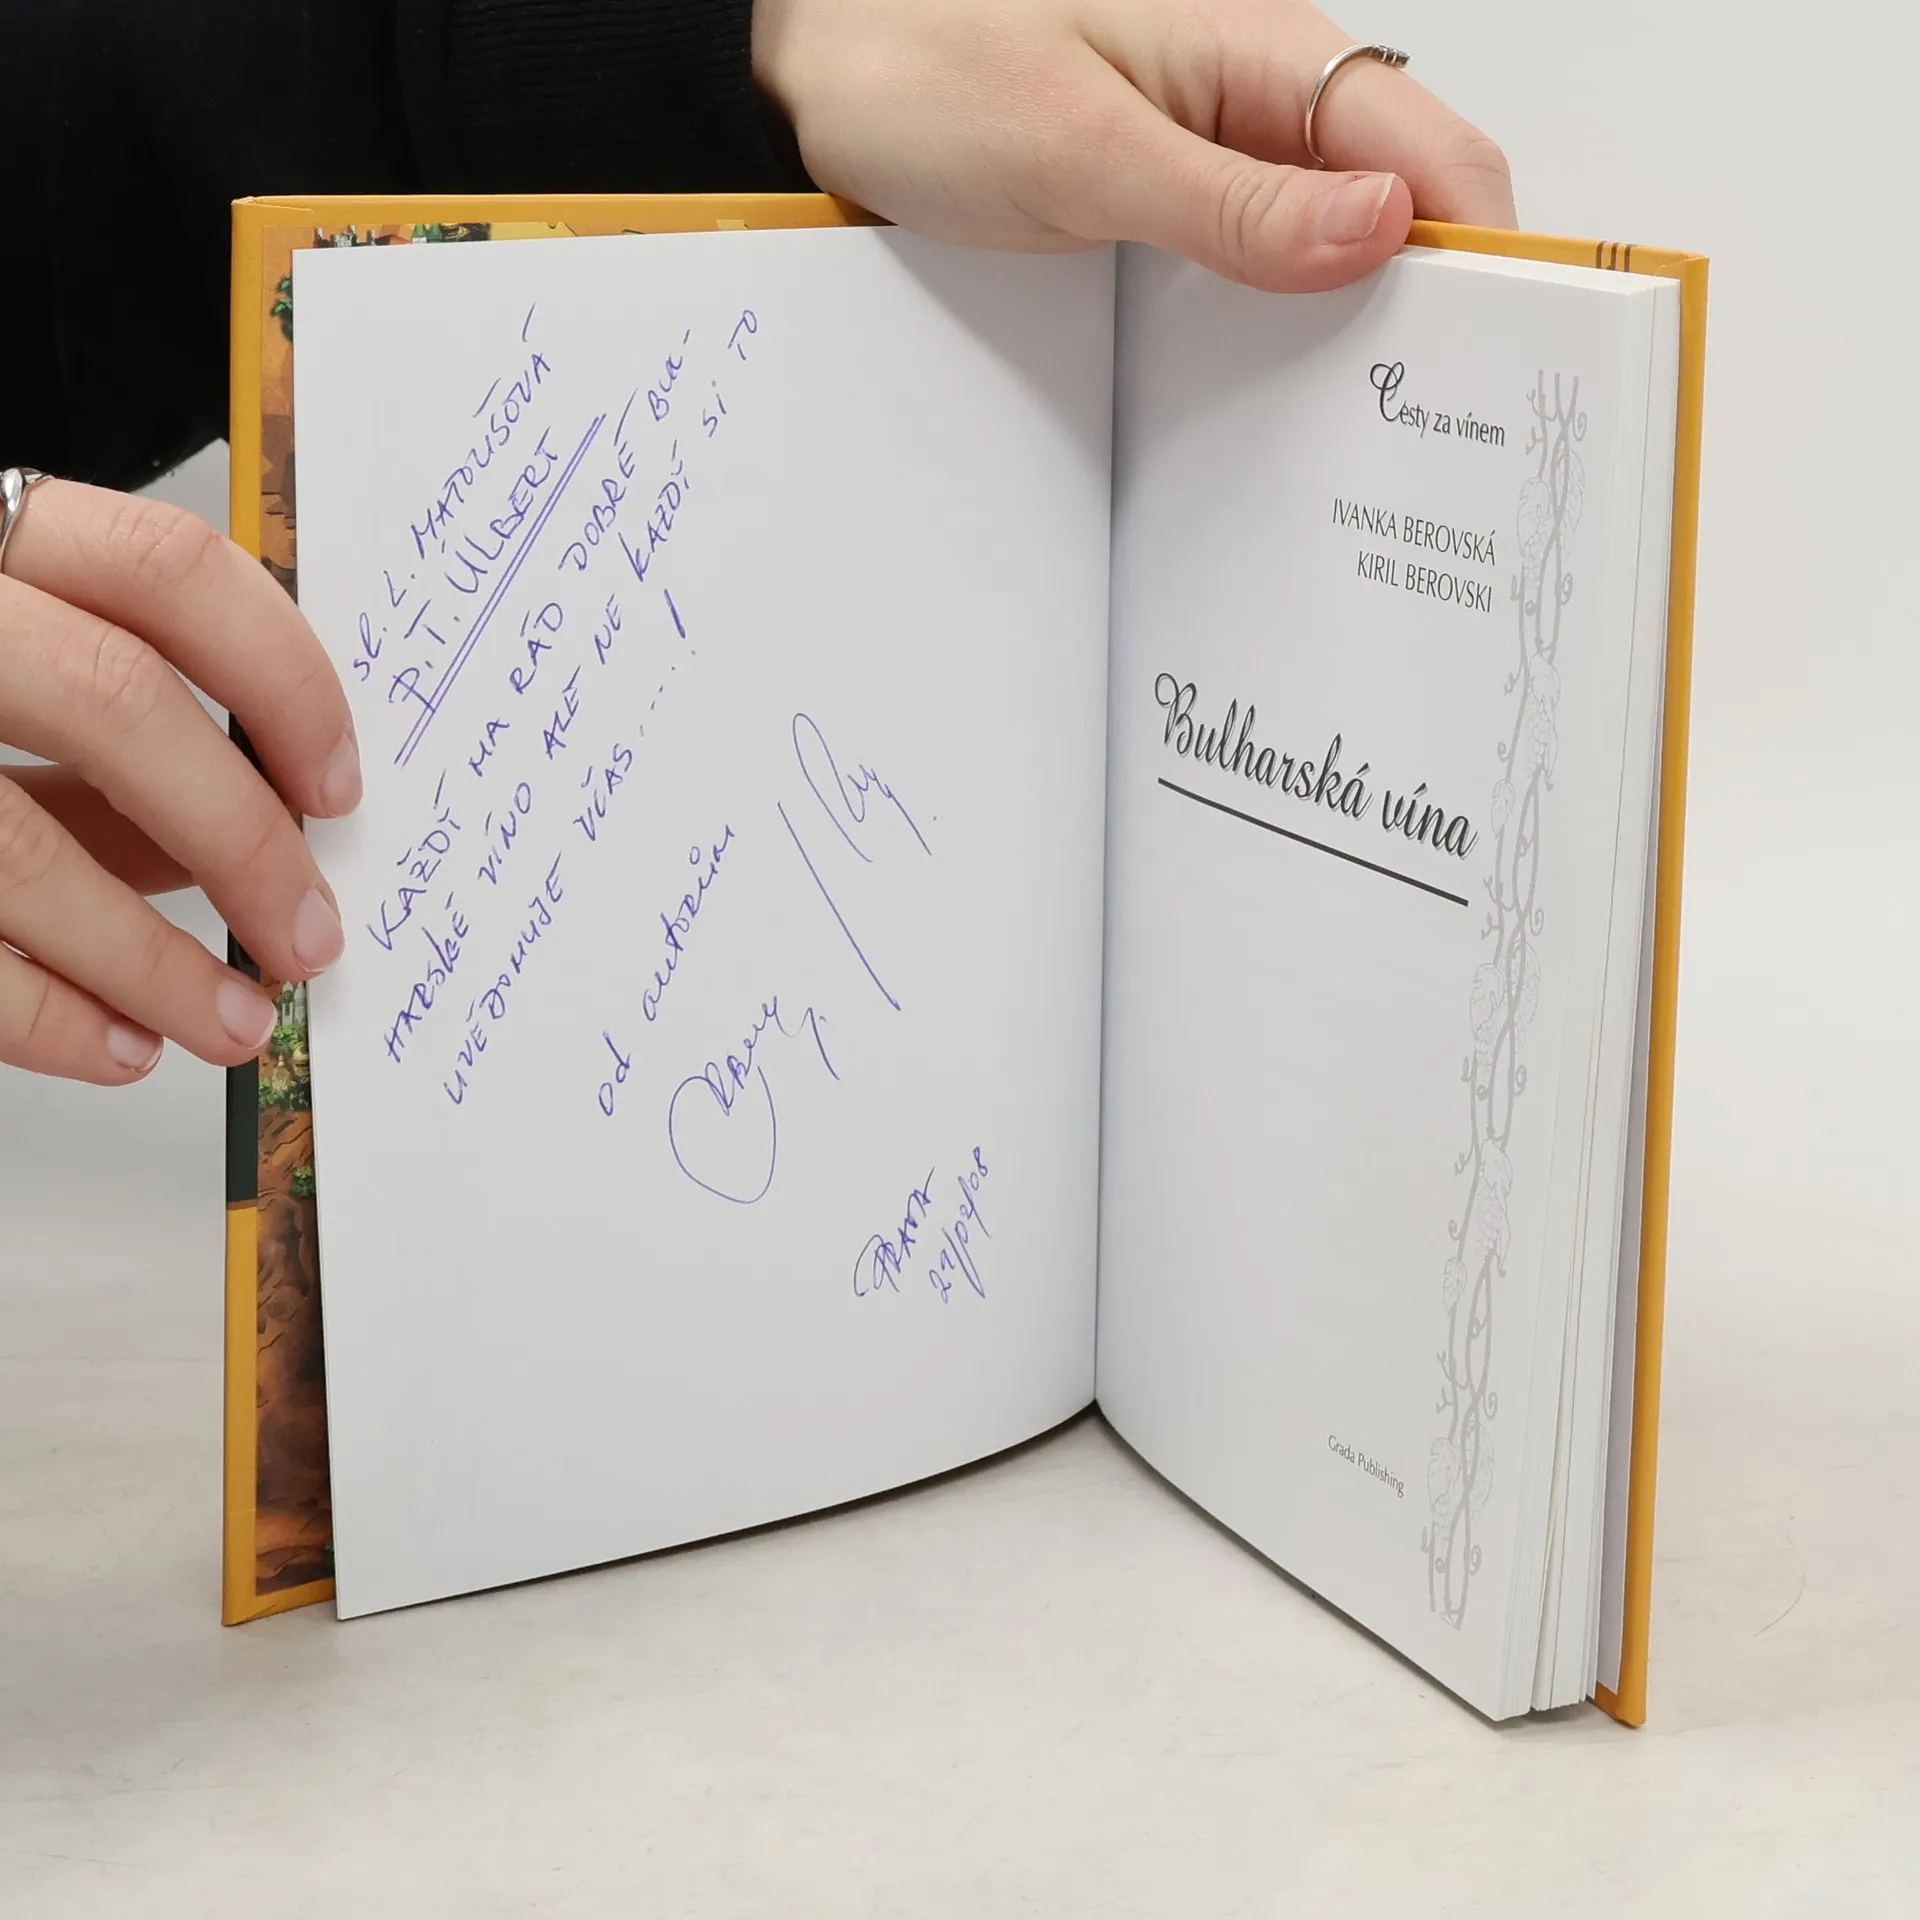 SL. L. MATOUŠOVÁ
P. T. ÚLBERT
KAŽDÍ MA RÁD DOBRÉ BUL-
HARSKÉ VÍNO ALE NE KAŽDÍ SI TO
UVĚDOMUJE VČAS....!
od autorů
PRAHA
22/02/08
Cesty za vínem
IVANKA BEROVSKÁ
KIRIL BEROVSKI
Bulharská vína
Grada Publishing